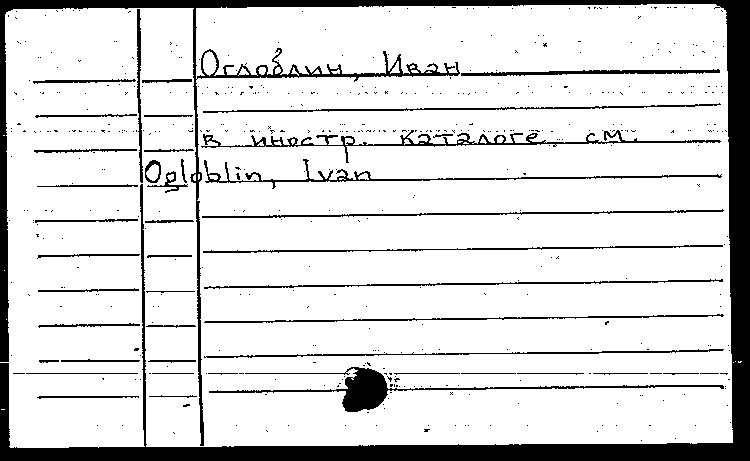 Оглоблин, Иван
в иностр. каталоге см.
Ogloblin, Ivan